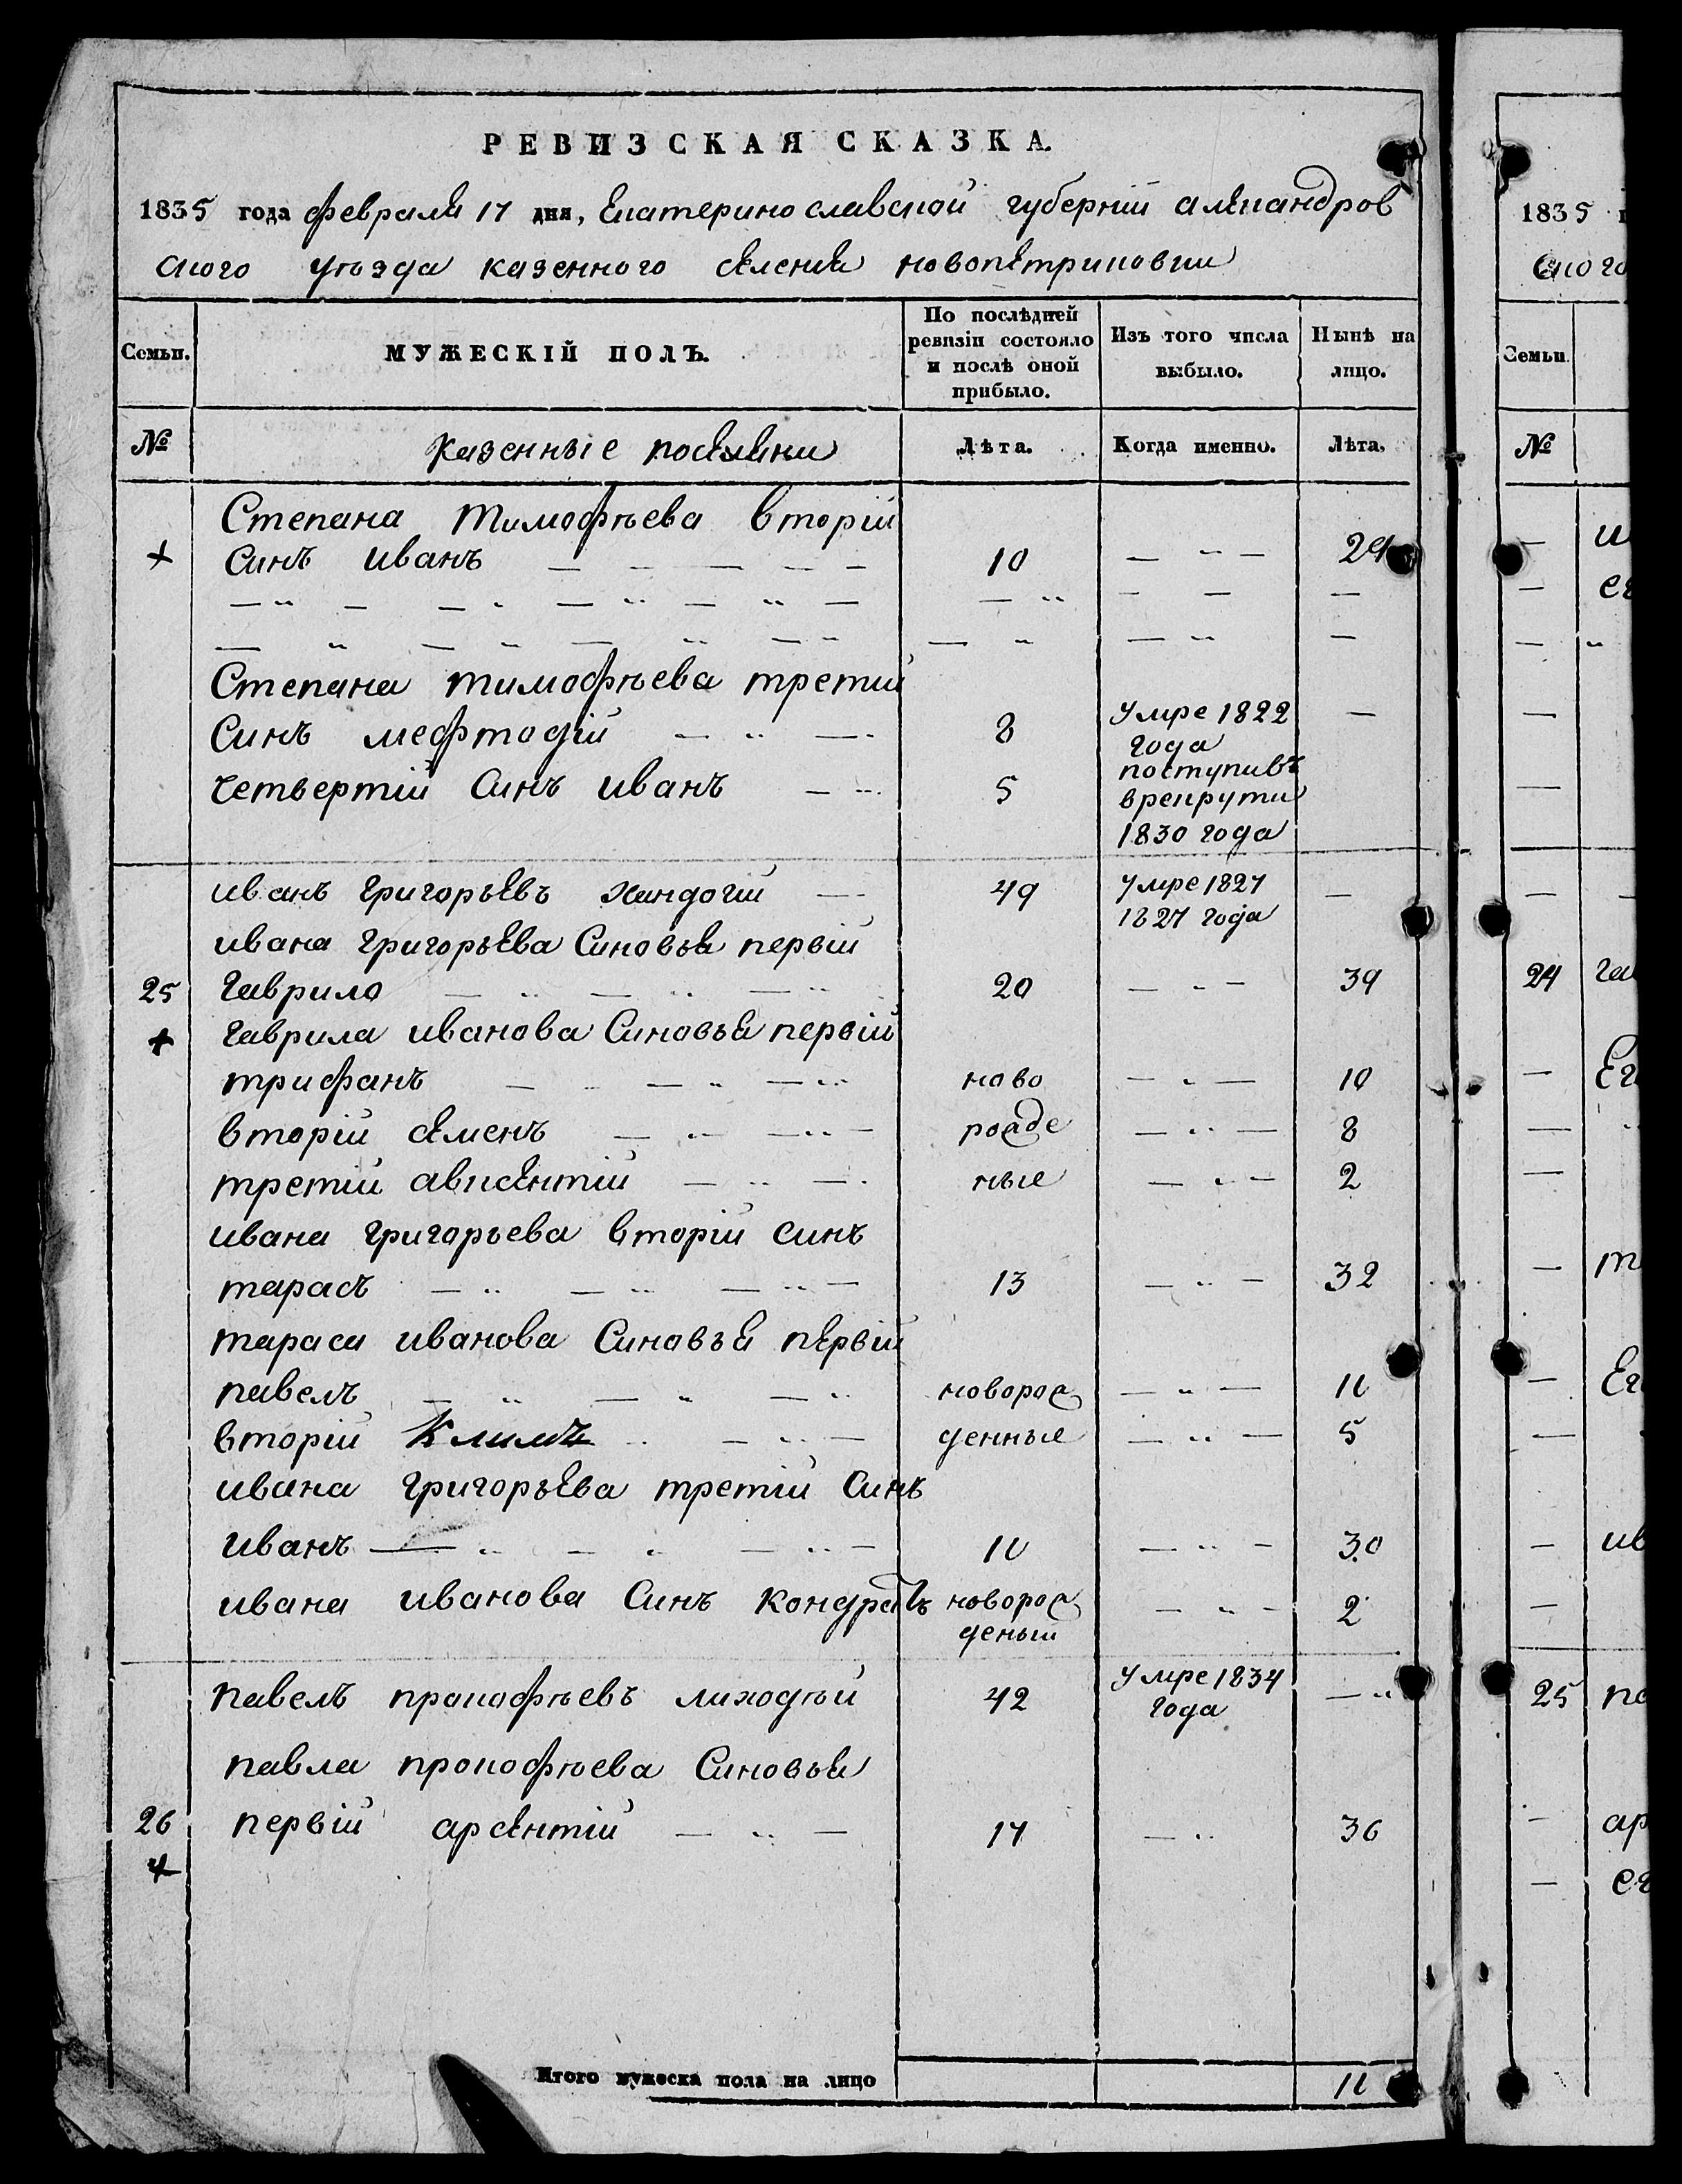 РЕВИЗСКАЯ СКАЗКА.
1835 года февраля 17 дня, Екатеринославской губерніи александров
ского уѣзда казенного селения новопетриковки
Семьи. МУЖЕСКІЙ ПОЛЪ. По послѣдней ревизіи состояло и послѣ оной прибыло. Изъ того числа выбыло. Нынѣ на лицо.
№ казенные поселяни Лѣта. Когда именно. Лѣта.
Степана тимофѣева вторій
+ синъ иванъ 10 29
Степана тимофѣева третий
синъ мефтодій 8 умре 1822 года
четвертій синъ иванъ 5 поступивъ
врекрути
1830 года
иванъ григорьевъ хандогій 49 умре 1827
1827 года
ивана григорьева синовья первій
25 гаврило 20 39
+ гаврила иванова синовья первій
трифанъ ново 10
вторій семенъ рожде 8
третій авксентій ные 2
ивана григорьева вторій синъ
тарасъ 13 32
тараса иванова синовья первій
павелъ новорож 11
вторій Климъ денные 5
ивана григорьева третій синъ
иванъ 11 30
ивана иванова синъ кондратъ новорож 2
деный
павелъ прокофѣевъ лиходѣй 42 умре 1834
года
павла прокофѣева синовья
26 первій арсентій 17 36
+
Итого мужеска пола на лицо 11
1835
ского
Семьи.
№
24
25